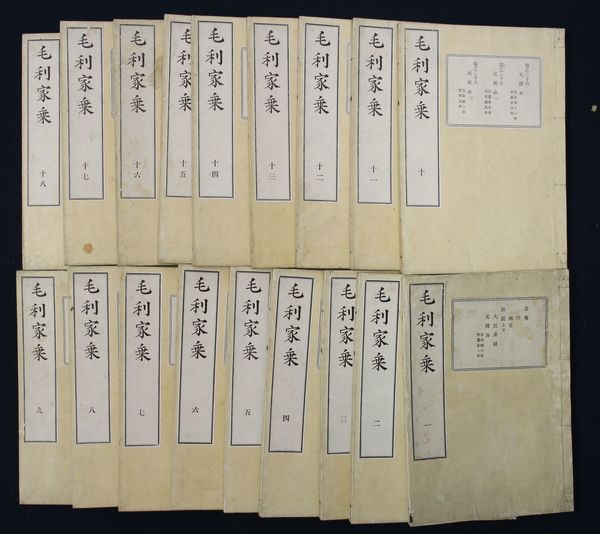 毛利家乗
十
毛利家乗
十一
毛利家乗
十二
毛利家乗
十三
毛利家乗
十四
毛利家乗
十五
毛利家乗
十六
毛利家乗
十七
毛利家乗
十八
毛利家乗
一
毛利家乗
二
毛利家乗
三
毛利家乗
四
毛利家乗
五
毛利家乗
六
毛利家乗
七
毛利家乗
八
毛利家乗
九